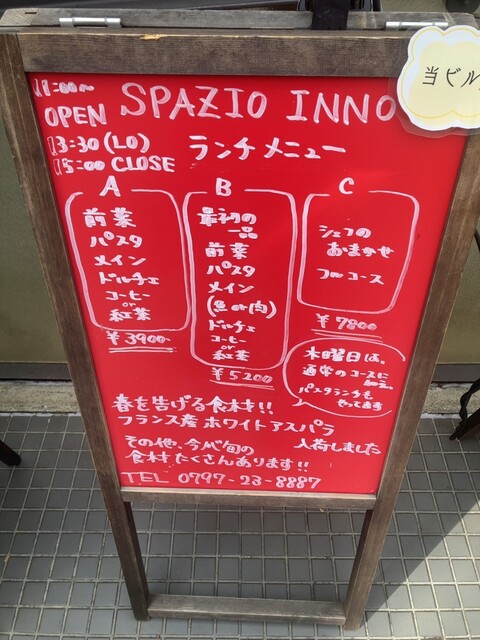 11:00~
OPEN
SPAZIO INNO
13:30(LO)
15:00 CLOSE
ランチメニュー
A
前菜
パスタ
メイン
ドルチェ
コーヒー
or
紅茶
¥3900-
B
最初の
一品
前菜
パスタ
メイン
(魚or肉)
ドルチェ
コーヒー
or
紅茶
¥5200
C
シェフの
おまかせ
フルコース
¥7800
木曜日は、
通常のコースに
加え、
パスタランチも
やってます
春を告げる食材!!
フランス産ホワイトアスパラ
入荷しました
その他、今が旬の
食材たくさんあります!!
TEL 0797-23-8887
当ビル